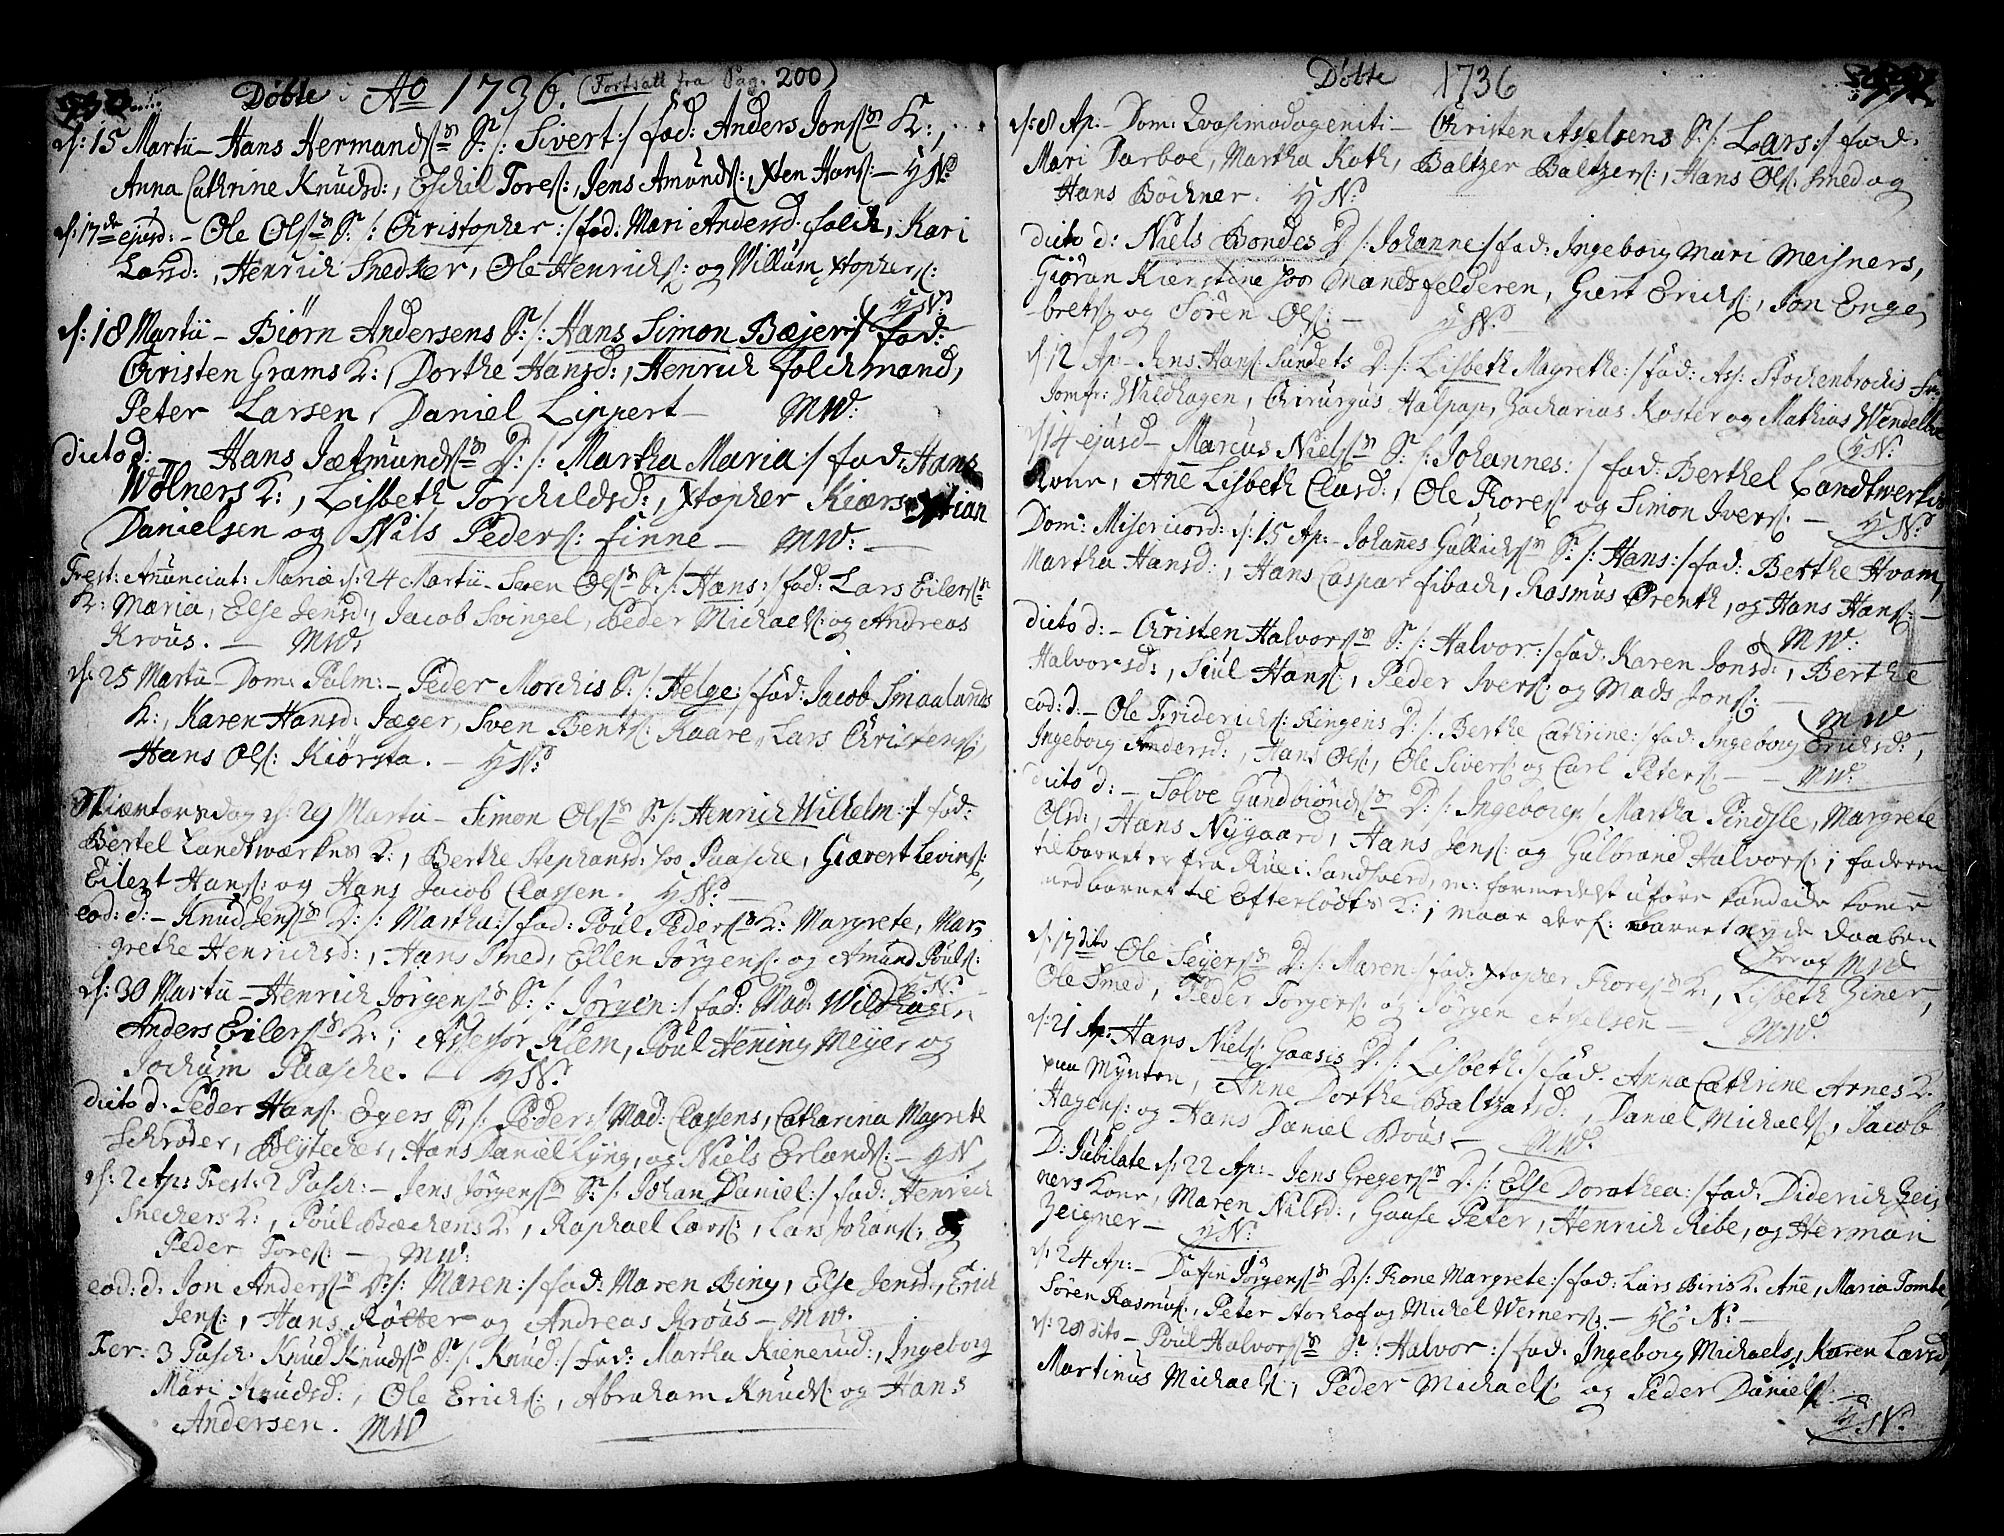 Döbte Ao 1736. (Fortsatt fra Pag. 200)
d: 15 Martii – Hans Hermands:n S: /: Sivert :/ fad: Anders Jons:n K:,
Anna Cathrine Knudsd:, Eschil Tores:, Jens Amunds:, Xten Hans: – HN:
d: 17de ejusd: – Ole Ols:n S: /: Christopher :/ fad: Mari Andersd: Falch, Kari
Larsd:, Henrich Snedker, Ole Henrichs: og Willum Xtophers:
HN:
d: 18 Martii – Biørn Andersens S: /: Hans Simon Bæjer :/ fad:
Christen Grams K:, Dorthe Hansd:, Henrich Folchmand,
Peter Larsen, Daniel Lippert – MW:
dicto d: Hans Jætmunds:n D: /: Martha Maria :/ fad: Hans
Wölners K:, Lisbeth Torchildsd:, Xtopher Kiærs, Xtian
Danielsen og Nils Peders: Finne – MW: –
Fest: Anunciat: Mariæ d: 24 Martii – Sven Ols:n S: /: Hans :/ fad: Lars Eilers:n
K: Maria, Else Jensd:, Jacob Svingel, Peder Michaels: og Andreas
Kroüs. – MW:
d: 25 Martii – Dom: Palm: – Peder Morchis S: /: Helge :/ fad: Jacob Smaalands
K:, Karen Hansd: Jæger, Sven Bents: Kaare, Lars Christens:,
Hans Ols: Kiörsta. – HN:
Skiærtorsdag d: 29 Martii – Simon Ols:n S: /: Henrich Wilhelm :/ fad:
Bertel Landtwærkes K:, Berthe Stephansd: hos Paasche, Giævert Levins:,
Eilert Hans: og Hans Jacob Classen. HN: –
eod: d: – Knud Jens:n D: /: Martha :/ fad: Poül Peders:n K: Margrete, Mar-
grethe Henrichsd:, Hans Smed, Ellen Jörgens: og Amund Poüls:
HN:
d: 30 Martii – Henrich Jörgens:n S: /: Jörgen :/ fad: Mad: Wildhagen
Anders Eilers:n K:, Assessor Klem, Poül Henning Meyer og
Jochum Paasche. HN:
dicto d: Peder Hans: Egers S: /: Peder :/ Mad: Classens, Catharina Magrete
Schröder, Blytecher, Hans Daniel Lyng, og Niels Erlands: – HN
d: 2 Ap: Fest: 2 Pasch: – Jens Jörgens:n S: /: Johan Daniel :/ fad: Henrich
Snechers K:, Poül Bæchens K:, Raphael Lars:, Lars Johans: og
Peder Tores: – MW:
eod: d: Jon Anders:n D: /: Maren :/ fad: Maren Bing, Else Jensd:, Erich
Jens:, Hans Rötter og Andreas Kroüs – MW.
Fer: 3 Pasch: Knud Knuds:n S: /: Knud :/ fad: Martha Kienerud:, Ingeborg
Mari Knudsd:, Ole Erichs:, Abraham Knuds: og Hans
Andersen. MW
Döbte 1736
d: 8 Ap: – Dom: Qvasimodogeniti – Christen Axelsens S: /: Lars :/ fad:
Mari Darboe, Martha Koth, Baltzer Baltzers:, Hans Ols: Smed og
Hans Böchner. HN:
dicto d: Niels Bondes D: /: Johanne :/ fad: Ingeborg Mari Meisners,
Giöran Kierstine hos Mandsfelderen, Giert Erichs:, Jon Enge-
brets: og Sören Ols: – HN:
d: 12 Ap: – Jens Hans: Sundets D: /: Lisbeth Magrethe :/ fad: Ass: Stochenbrochs Fr:
Jomfr: Wildhagen, Chirurgus Halpap, Zacharias Koster og Mathias Wendelboe
HN:
d: 14 ejusd – Marcus Niels:n S: /: Johannes :/ fad: Berthel Landtwerks
Kone, Ane Lisbeth Clasd:, Ole Thores: og Simon Ivers: –
HN:
Dom: Misericord: d: 15 Ap: – Johannes Gullichs:n S: /: Hans :/ fad: Berthe Hvam,
Martha Hansd:, Hans Caspar Fibach, Rasmus Prenth, og Hans Hans: –
MW:
dicto d: – Christen Halvors:n S: /: Halvor :/ fad: Karen Jonsd:, Berthe
Halvorsd:, Siul Hans:, Peder Ivers: og Mads Jons: –
MW
eod: d: – Ole Friderichs: Ringens D: /: Berthe Cathrine :/ fad: Ingeborg Erichsd:,
Ingeborg Andersd:, Hans Ols:, Ole Sivers: og Carl Peters: – MW:
dicto d: – Solve Gundbiönds:n D: /: Ingeborg :/ Martha Pindsle, Margrete
Olsd:, Hans Nygaard, Hans Jens: og Gulbrand Halvors: ; faderen
til barnet er fra Rue i Sandsverd, m: formedelst uföre kandide kome
med barnet til Efterlödts K: ; maae derf: barnet nyde Daaben
heraf MW
d: 17 dito Ole Seyers:n D: /: Maren :/ fad: Xtopher Thores:n K:, Lisbeth Ziner,
Ole Smed, Peder Torgers: og Jörgen Axelsen – MW:
d: 21 Ap: Hans Niels: Gaasis D: /: Lisbeth :/ fad: Anna Cathrine Arnes K:
paa Mynten, Anne Dorthe Baltzarsd:, Daniel Michaels:, Jacob
Hagens: og Hans Daniel Boüs – MW:
D: Jubilate d: 22 Ap: – Jens Gregers:n D: /: Else Dorathea :/ fad: Diderich Zeis
ners Kone, Maren Nilsd:, Gaase Peter, Henrich Ribe, og Herman
Zeigner – HN:
d: 24 Ap: – Daffin Jörgens:n D: /: Thone Margrete :/ fad: Lars Biris K: Ane, Maria Tomte,
Sören Rasmus:, Peter Storhof og Michel Werners: – H: N: –
d: 28 dito – Poül Halvors:n S: /: Halvor :/ fad: Ingeborg Michaels, Karen Larsd,
Martinus Michaels:, Peder Michaels: og Peder Daniels: –
HN: